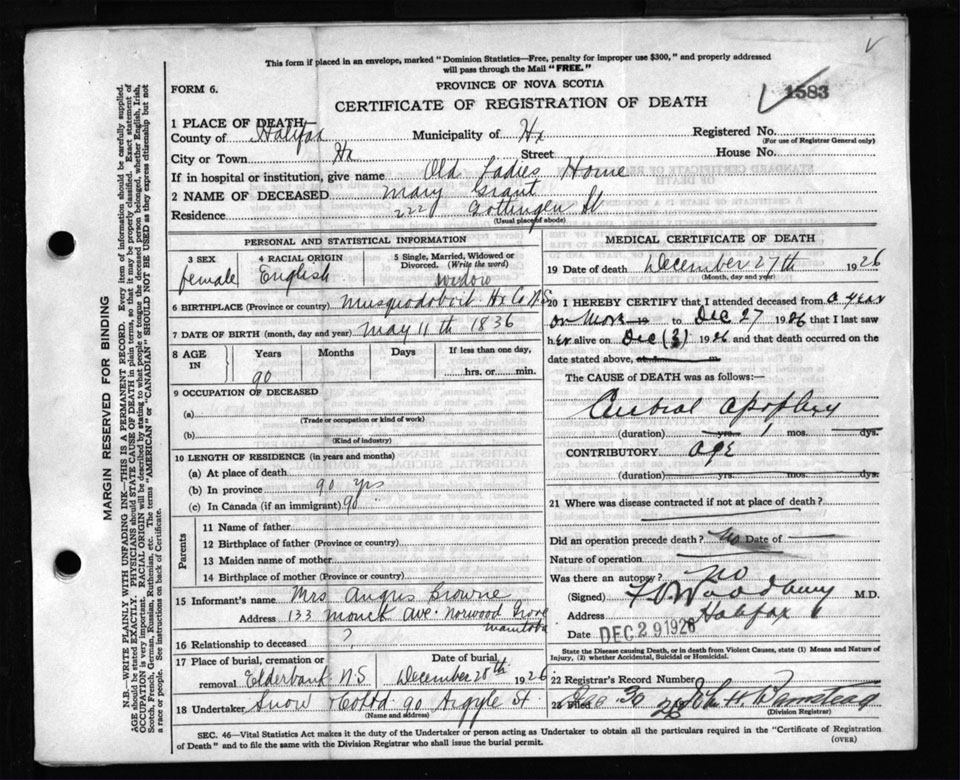 This form if placed in an envelope, marked "Dominion Statistics—Free, penalty for improper use $300," and properly addressed
will pass through the Mail "FREE."
FORM 6.
PROVINCE OF NOVA SCOTIA
CERTIFICATE OF REGISTRATION OF DEATH
1583
1 PLACE OF DEATH—
County of Halifax Municipality of Hx Registered No.
(For use of Registrar General only)
City or Town Hx Street House No.
If in hospital or institution, give name Old Ladies Home
2 NAME OF DECEASED Mary Grant
Residence 222 Gottingen St
(Usual place of abode)
PERSONAL AND STATISTICAL INFORMATION
3 SEX female
4 RACIAL ORIGIN English
5 Single, Married, Widowed or Divorced. (Write the word) widow
6 BIRTHPLACE (Province or country) Musquodoboit Hx Co NS
7 DATE OF BIRTH (month, day and year) May 11th 1836
8 AGE IN Years Months Days If less than one day, hrs. or min.
90
9 OCCUPATION OF DECEASED
(a)
(Trade or occupation or kind of work)
(b)
(Kind of industry)
10 LENGTH OF RESIDENCE (in years and months)
(a) At place of death
(b) In province 90 yrs
(c) In Canada (if an immigrant) 90 "
Parents
11 Name of father
12 Birthplace of father (Province or country)
13 Maiden name of mother
14 Birthplace of mother (Province or country)
15 Informant's name Mrs Angus Browne
Address 133 Monck Ave. Norwood Grove
Manitoba
16 Relationship to deceased ?
17 Place of burial, cremation or removal Elderbank N.S
Date of burial December 28th 1926
18 Undertaker Snow & Co Ltd 90 Argyle St
(Name and address)
MEDICAL CERTIFICATE OF DEATH
19 Date of death December 27th 1926
(Month, day and year)
20 I HEREBY CERTIFY that I attended deceased from a year
or more 19 to Dec 27 1926 that I last saw
her alive on Dec 1926 and that death occurred on the
date stated above, at m
The CAUSE of DEATH was as follows:—
Cerebral apoplexy
(duration) yrs. 1 mos. dys.
CONTRIBUTORY age
(duration) yrs. mos. dys.
21 Where was disease contracted if not at place of death?
Did an operation precede death? No Date of —
Nature of operation —
Was there an autopsy? No
(Signed) Woodbury M.D.
Address Halifax
Date DEC 29 1926
State the Disease causing Death, or in death from Violent Causes, state (1) Means and Nature of
Injury, (2) whether Accidental, Suicidal or Homicidal.
22 Registrar's Record Number
23 Filed Dec 30 26
(Division Registrar)
SEC. 46—Vital Statistics Act makes it the duty of the Undertaker or person acting as Undertaker to obtain all the particulars required in the "Certificate of Registration
of Death" and to file the same with the Division Registrar who shall issue the burial permit. (OVER)
MARGIN RESERVED FOR BINDING
N.B.—WRITE PLAINLY WITH UNFADING INK—THIS IS A PERMANENT RECORD. Every item of information should be carefully supplied.
AGE should be stated EXACTLY. PHYSICIANS should STATE CAUSE OF DEATH in plain terms, so that it may be properly classified. Exact statement of
OCCUPATION is very important. RACIAL ORIGIN will be described by stating to what people or tongue the deceased person belonged, whether English, Irish,
Scotch, French, German, Russian, Ruthenian, etc. The terms "AMERICAN" or "CANADIAN" SHOULD NOT BE USED as they express citizenship but not
a race or people. See instructions on back of Certificate.